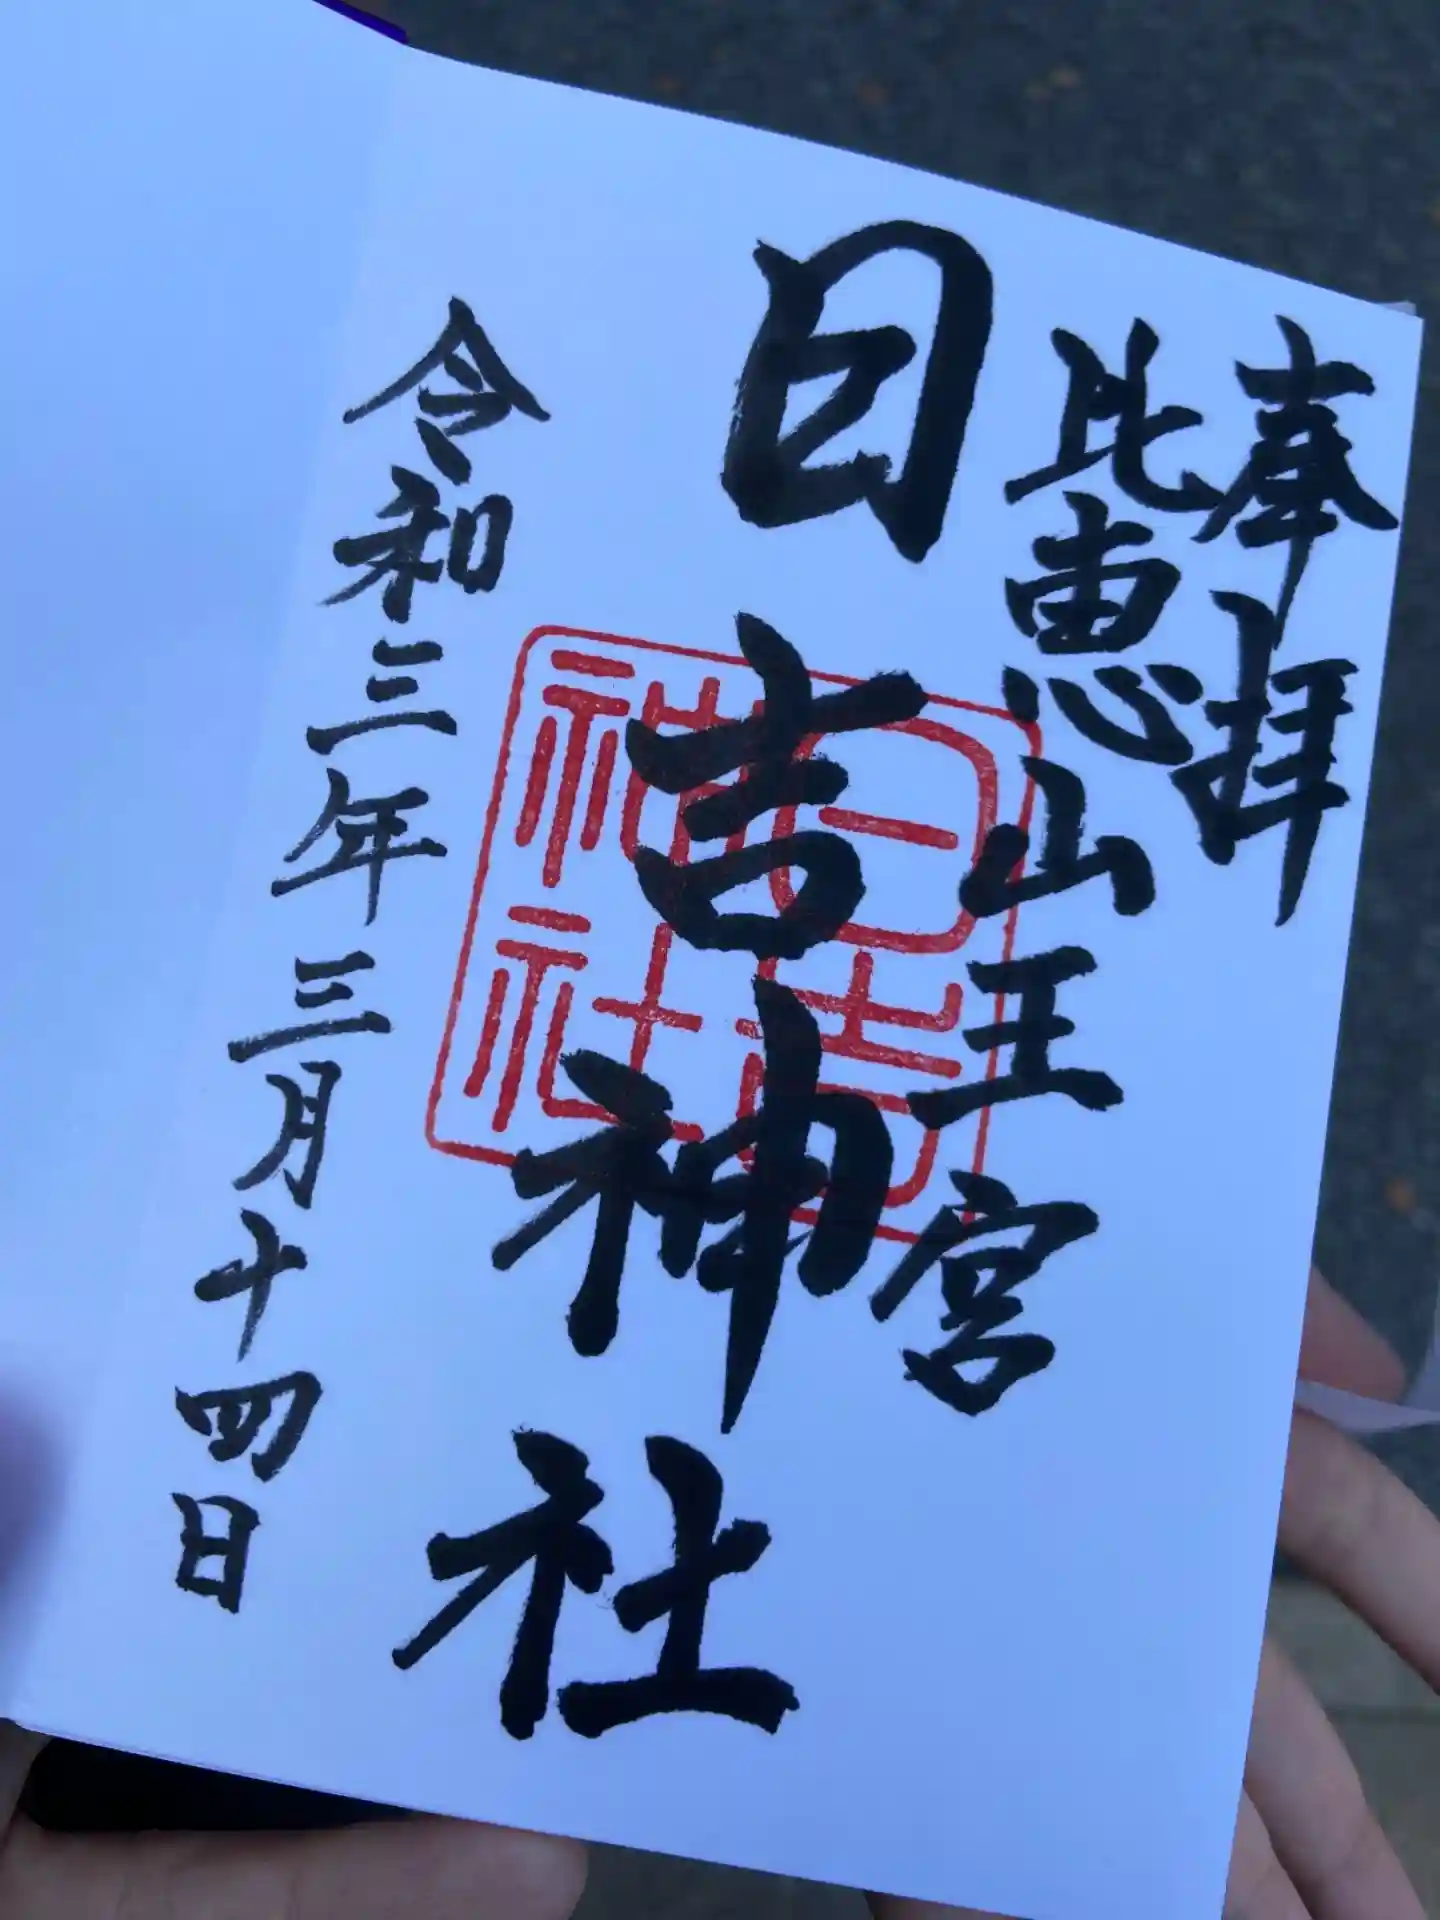 奉拝
比恵山王宮
日吉神社
日吉
神社
令和三年三月十四日